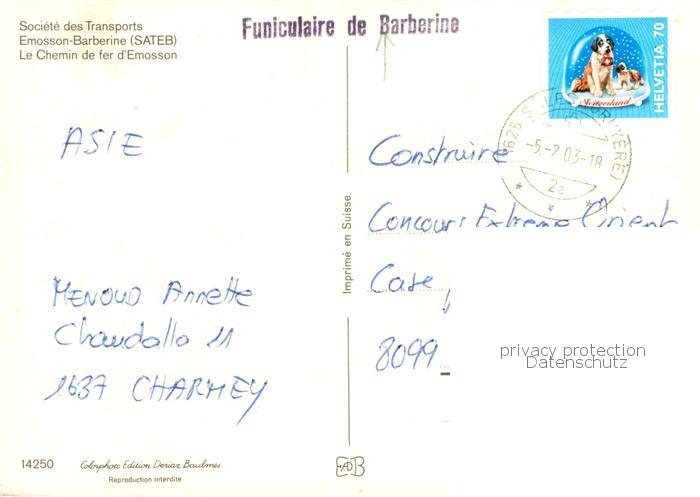 Société des Transports
Emosson-Barberine (SATEB)
Le Chemin de fer d'Emosson
Funiculaire de Barberine
HELVETIA 70
Switzerland
-5.-2.03-18
2a
ASIE
Construire
Concours Extreme Orient
Case
8099
MENOUD Annette
Chaudalla 11
1637 CHARMEY
Imprimé en Suisse
privacy protection
Datenschutz
14250
Colorphoto Edition Deriaz Baulmes
Reproduction interdite